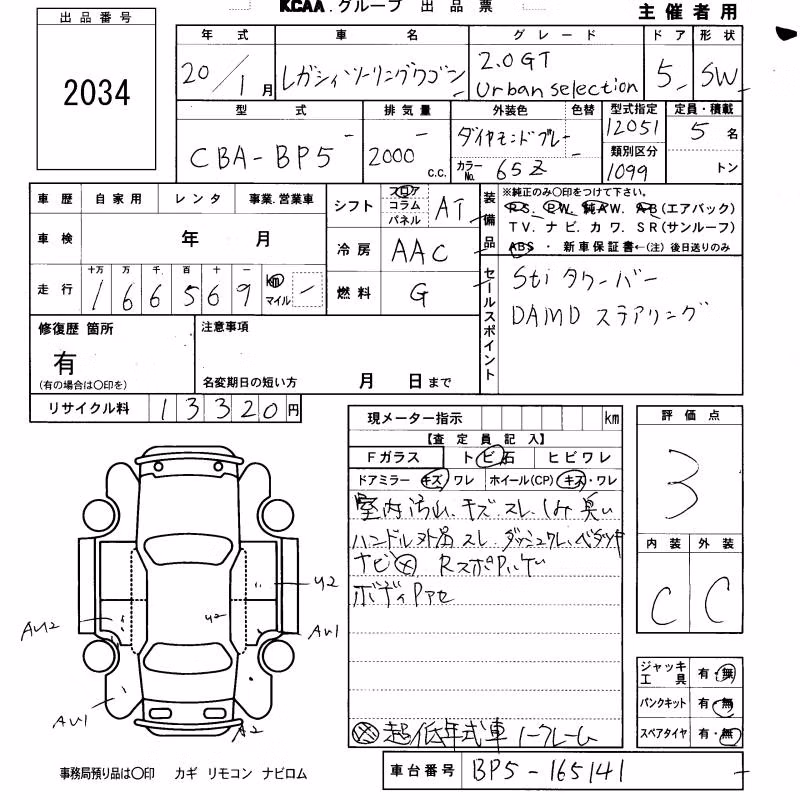 KCAA.グループ 出品票
主催者用
出品番号
2034
年式 車名 グレード ドア 形状
20/1月 レガシィツーリングワゴン 2.0GT Urban selection 5 SW
型式 排気量 外装色 色替 型式指定 定員・積載
CBA-BP5 2000 c.c. 12051 5名
類別区分
カラーNo. 65Z 1099 トン
車歴 自家用 レンタ 事業.営業車
車検 年 月
シフト フロア コラム パネル AT
冷房 AAC
燃料 G
走行 十万 万 千 百 十 一
1 6 6 5 6 9 km マイル
装備品
※純正のみ〇印をつけて下さい。
P.S. P.W. 純AW. AB(エアバック)
TV. ナビ. カワ. SR(サンルーフ)
ABS ・ 新車保証書←(注) 後日送りのみ
セールスポイント
Sti タワーバー
DAMD ステアリング
修復歴 箇所
有
(有の場合は〇印を)
注意事項
名変期日の短い方 月 日まで
リサイクル料 13320円
現メーター指示 km
【査定員記入】
Fガラス トビ石 ヒビワレ
ドアミラー キズ ワレ ホイール(CP) キズ・ワレ
室内 汚れ、キズ.スレ.しみ 臭い
ハンドル スレ.ダッシュワレ、ベタツキ
ナビ
ボディ
超低年式車 ノークレーム
評価点
3
内装 外装
C C
ジャッキ工具 有・無
パンクキット 有・無
スペアタイヤ 有・無
U2
U2
AU2
AU1
AU1
A2
事務局預り品は〇印 カギ リモコン ナビロム
車台番号 BP5-165141